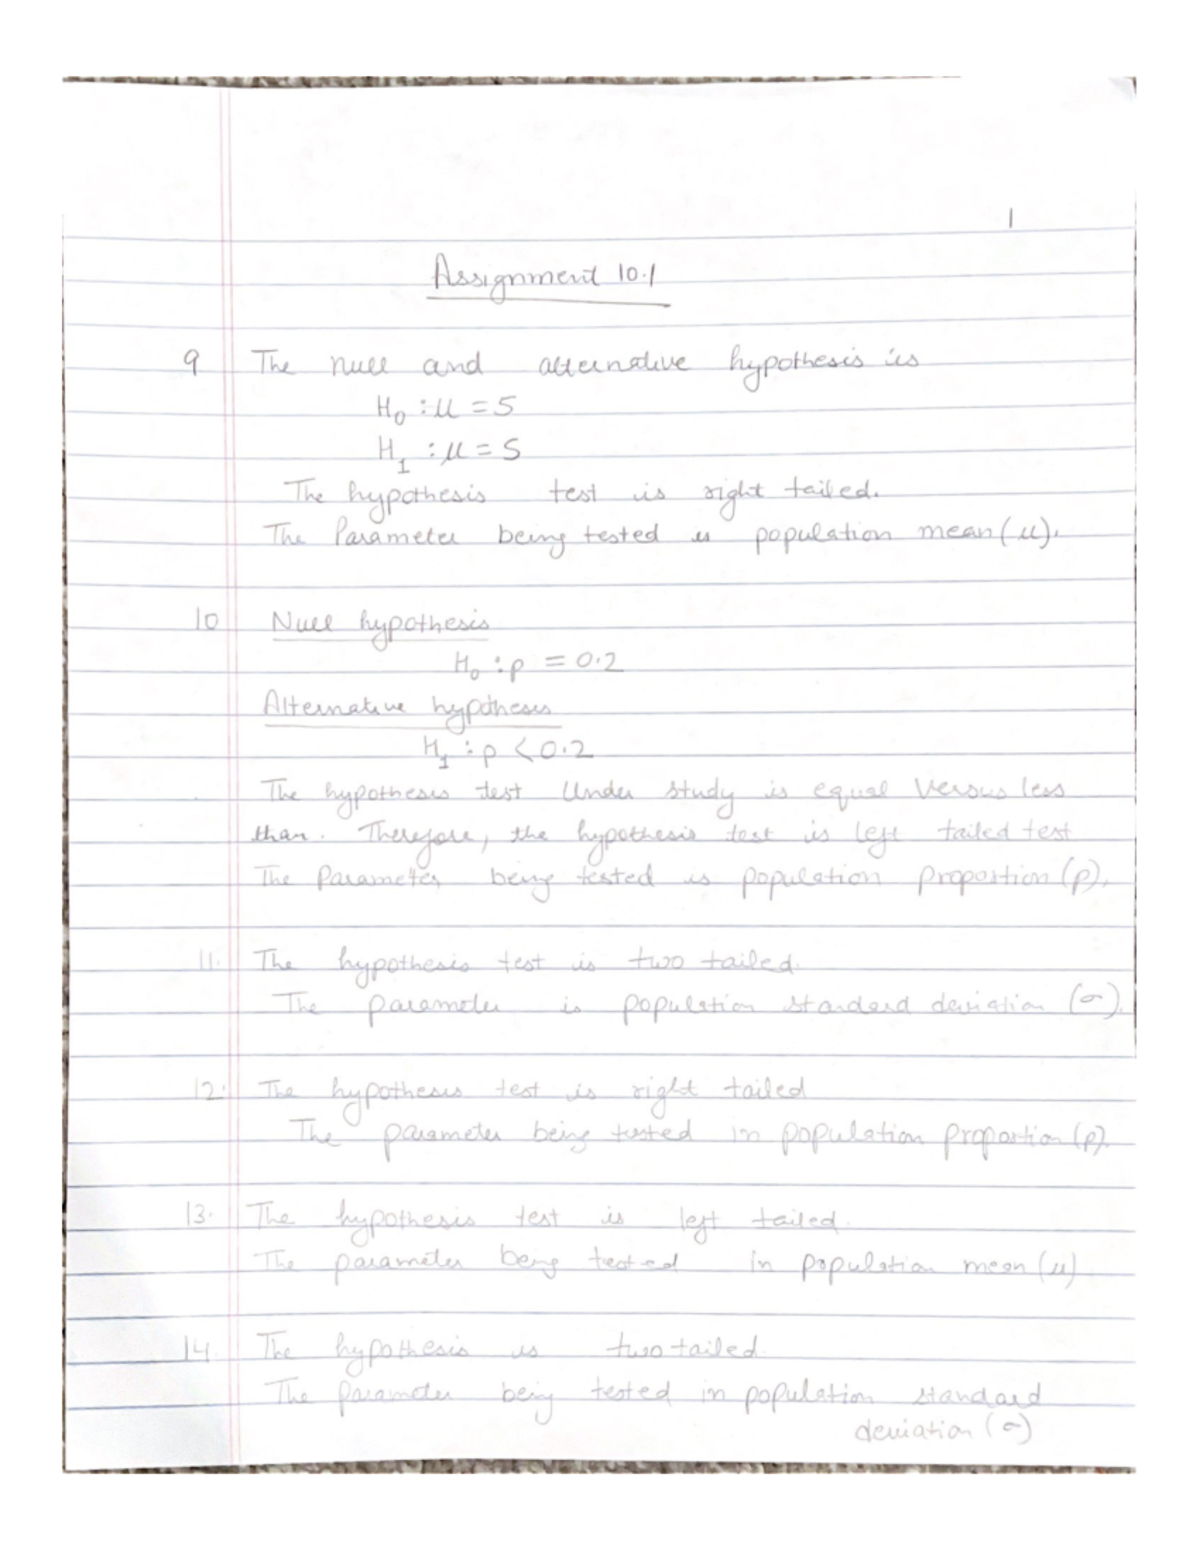 1
Assignment 10.1
9 The null and alternative hypothesis is
H₀ : μ = 5
H₁ : μ = 5
The hypothesis test is right tailed.
The Parameter being tested is population mean (μ).
10 Null hypothesis
H₀ : p = 0.2
Alternative hypothesis
H₁ : p < 0.2
The hypothesis test under study is equal versus less
than. Therefore, the hypothesis test is left tailed test
The Parameter being tested is population proportion (p).
11. The hypothesis test is two tailed.
The parameter is population standard deviation (σ).
12. The hypothesis test is right tailed
The parameter being tested in population proportion (p).
13. The hypothesis test is left tailed.
The parameter being tested in population mean (μ)
14. The hypothesis is two tailed.
The parameter being tested in population standard
deviation (σ)